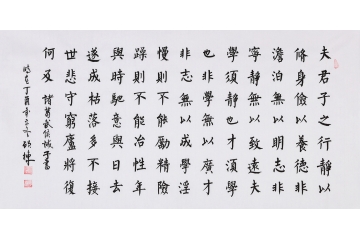 夫君子之行靜以
脩身儉以養德非
澹泊無以明志非
寧靜無以致遠夫
學須靜也才須學
也非學無以廣才
非志無以成學淫
慢則不能勵精險
躁則不能冶性年
與時馳意與日去
遂成枯落多不接
世悲守窮廬將復
何及 諸葛武侯誡子書